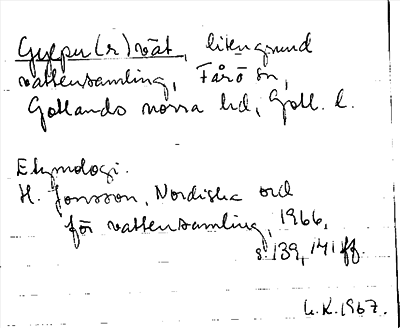 Gylpu(r)vät, liten grund
vattensamling, Fårö sn,
Gotlands norra hd, Gotl. l.
Etymologi.
H. Jonsson, Nordiska ord
för vattensamling, 1966,
s. 139, 141 ff.
L.K. 1967.